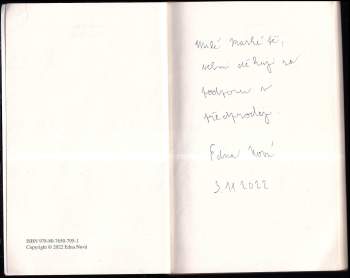 ISBN 978-80-7650-795-1
Copyright © 2022 Edna Nová
Milé Markétě,
děkuji za
podporu v
předprodej
Edna Nová
3 11 2022